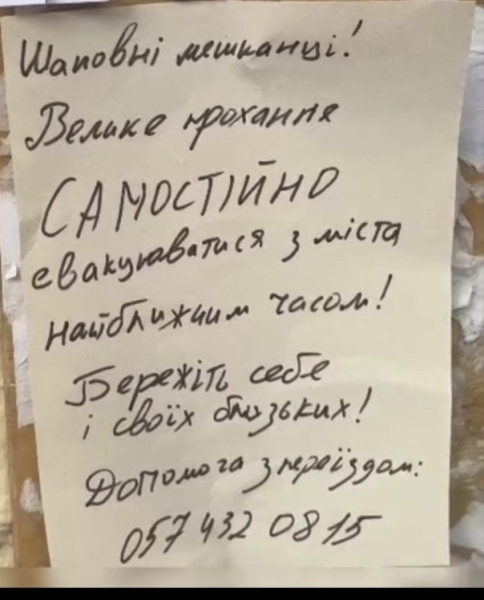 Шановні мешканці!
Велике прохання
САМОСТІЙНО
евакуюватися з міста
найближчим часом!
Бережіть себе
і своїх близьких!
Допомога з переїздом:
057 432 0815